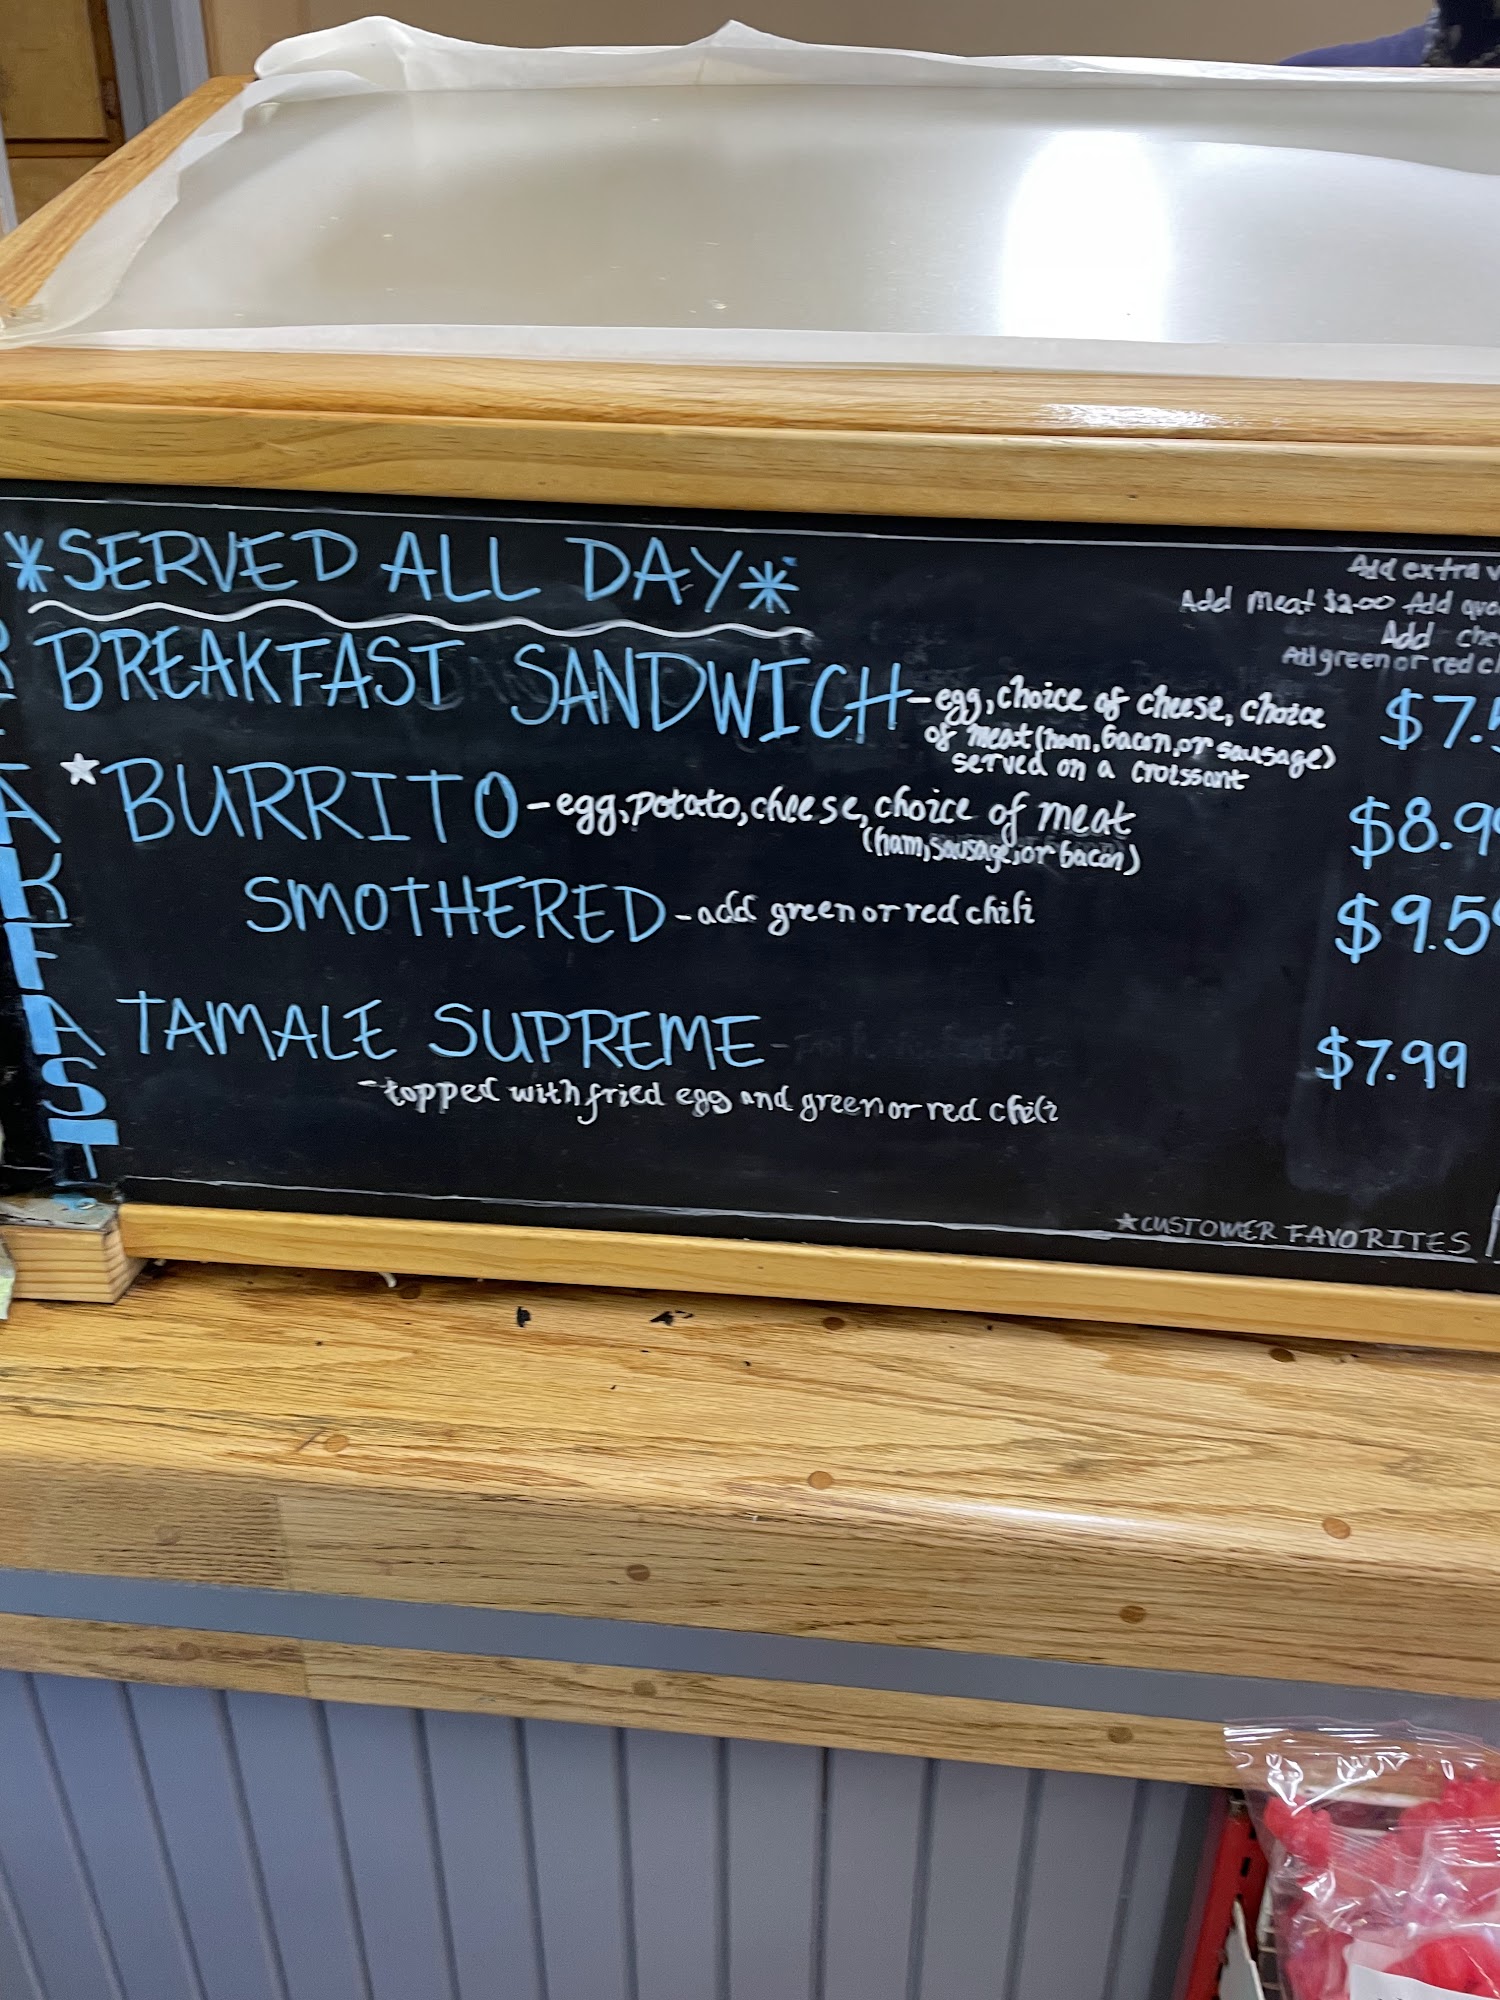 *SERVED ALL DAY*
Add extra v
Add meat $2.00 Add
Add che
Add green or red c
BREAKFAST SANDWICH - egg, choice of cheese, choice $7.5
of meat (ham, bacon, or sausage)
served on a croissant
★BURRITO - egg, potato, cheese, choice of meat $8.99
(ham, sausage, or bacon)
SMOTHERED - add green or red chili $9.59
TAMALE SUPREME - $7.99
- topped with fried egg and green or red chili
★CUSTOMER FAVORITES
BREAKFAST